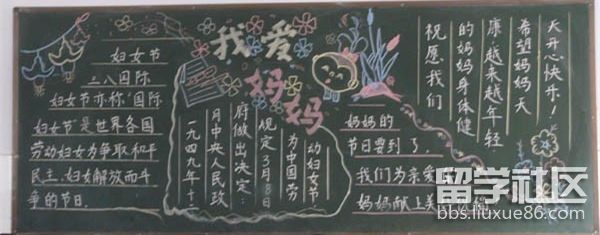 我爱
妈妈
妇女节
三八国际
妇女节亦称“国际
妇女节”是世界各国
劳动妇女为争取和平
民主、妇女解放而斗
争的节日。
动妇女节
为中国劳
规定3月8日
府做出决定:
月中央人民政
一九四九年十二
妈妈的
节日要到了,
我们为亲爱
妈妈献上美
天开心快乐!
希望妈妈天
康越来越年轻
的妈妈身体健
祝愿我们
留学社区
bbs.liuxue86.com